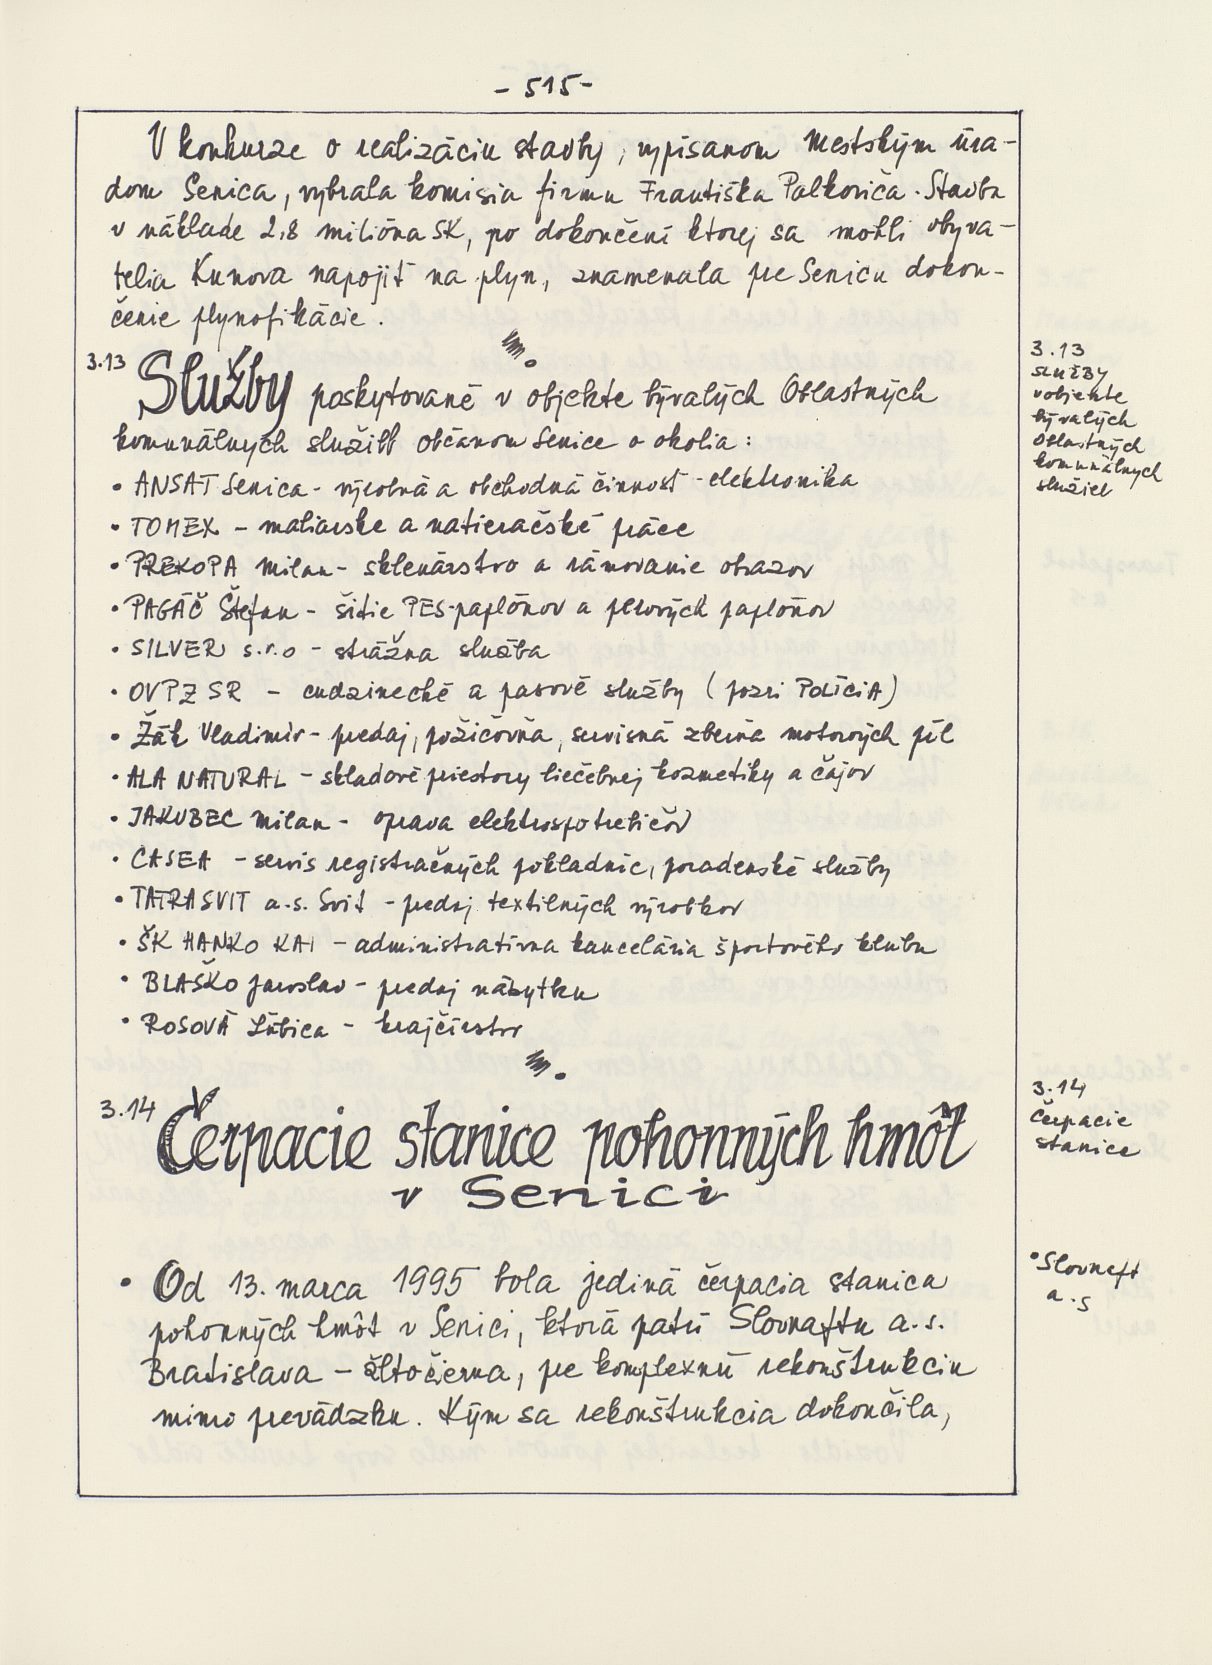 - 515 -
V konkurze o realizáciu stavby, vypísanom Mestským úra-
dom Senica, vybrala komisia firmu Františka Palkoviča. Stavba
v náklade 2,8 milióna SK, po dokončení ktorej sa mohli obyva-
telia Kunova napojiť na plyn, znamenala pre Senicu dokon-
čenie plynofikácie.
3.13 Služby poskytované v objekte bývalých Oblastných
komunálnych služieb občanom Senice a okolia:
• ANSAT Senica - výrobná a obchodná činnosť - elektronika
• TOMEX - maliarske a natieračské práce
• PREKOPA Milan - sklenárstvo a rámovanie obrazov
• PAGÁČ Štefan - šitie PES-paplónov a perových paplónov
• SILVER s.r.o - strážna služba
• OVPZ SR - cudzinecké a pasové služby (pozri POLÍCIA)
• Žák Vladimír - predaj, požičovňa, servisná zberňa motorových píl
• ALA NATURAL - skladové priestory liečebnej kozmetiky a čajov
• JAKUBEC Milan - oprava elektrospotrebičov
• CASEA - servis registračných pokladníc, poradenské služby
• TATRASVIT a.s. Svit - predaj textilných výrobkov
• ŠK HANKO KAI - administratívna kancelária športového klubu
• BLAŠKO Jaroslav - predaj nábytku
• ROSOVÁ Ľubica - krajčírstvo
3.14 Čerpacie stanice pohonných hmôt
v Senici
• Od 13. marca 1995 bola jediná čerpacia stanica
pohonných hmôt v Senici, ktorá patrí Slovnaftu a.s.
Bratislava - žltočierna, pre komplexnú rekonštrukciu
mimo prevádzku. Kým sa rekonštrukcia dokončila,
3.13
SLUŽBY
v objekte
bývalých
Oblastných
komunálnych
služieb
3.14
Čerpacie
stanice
• Slovnaft
a.s